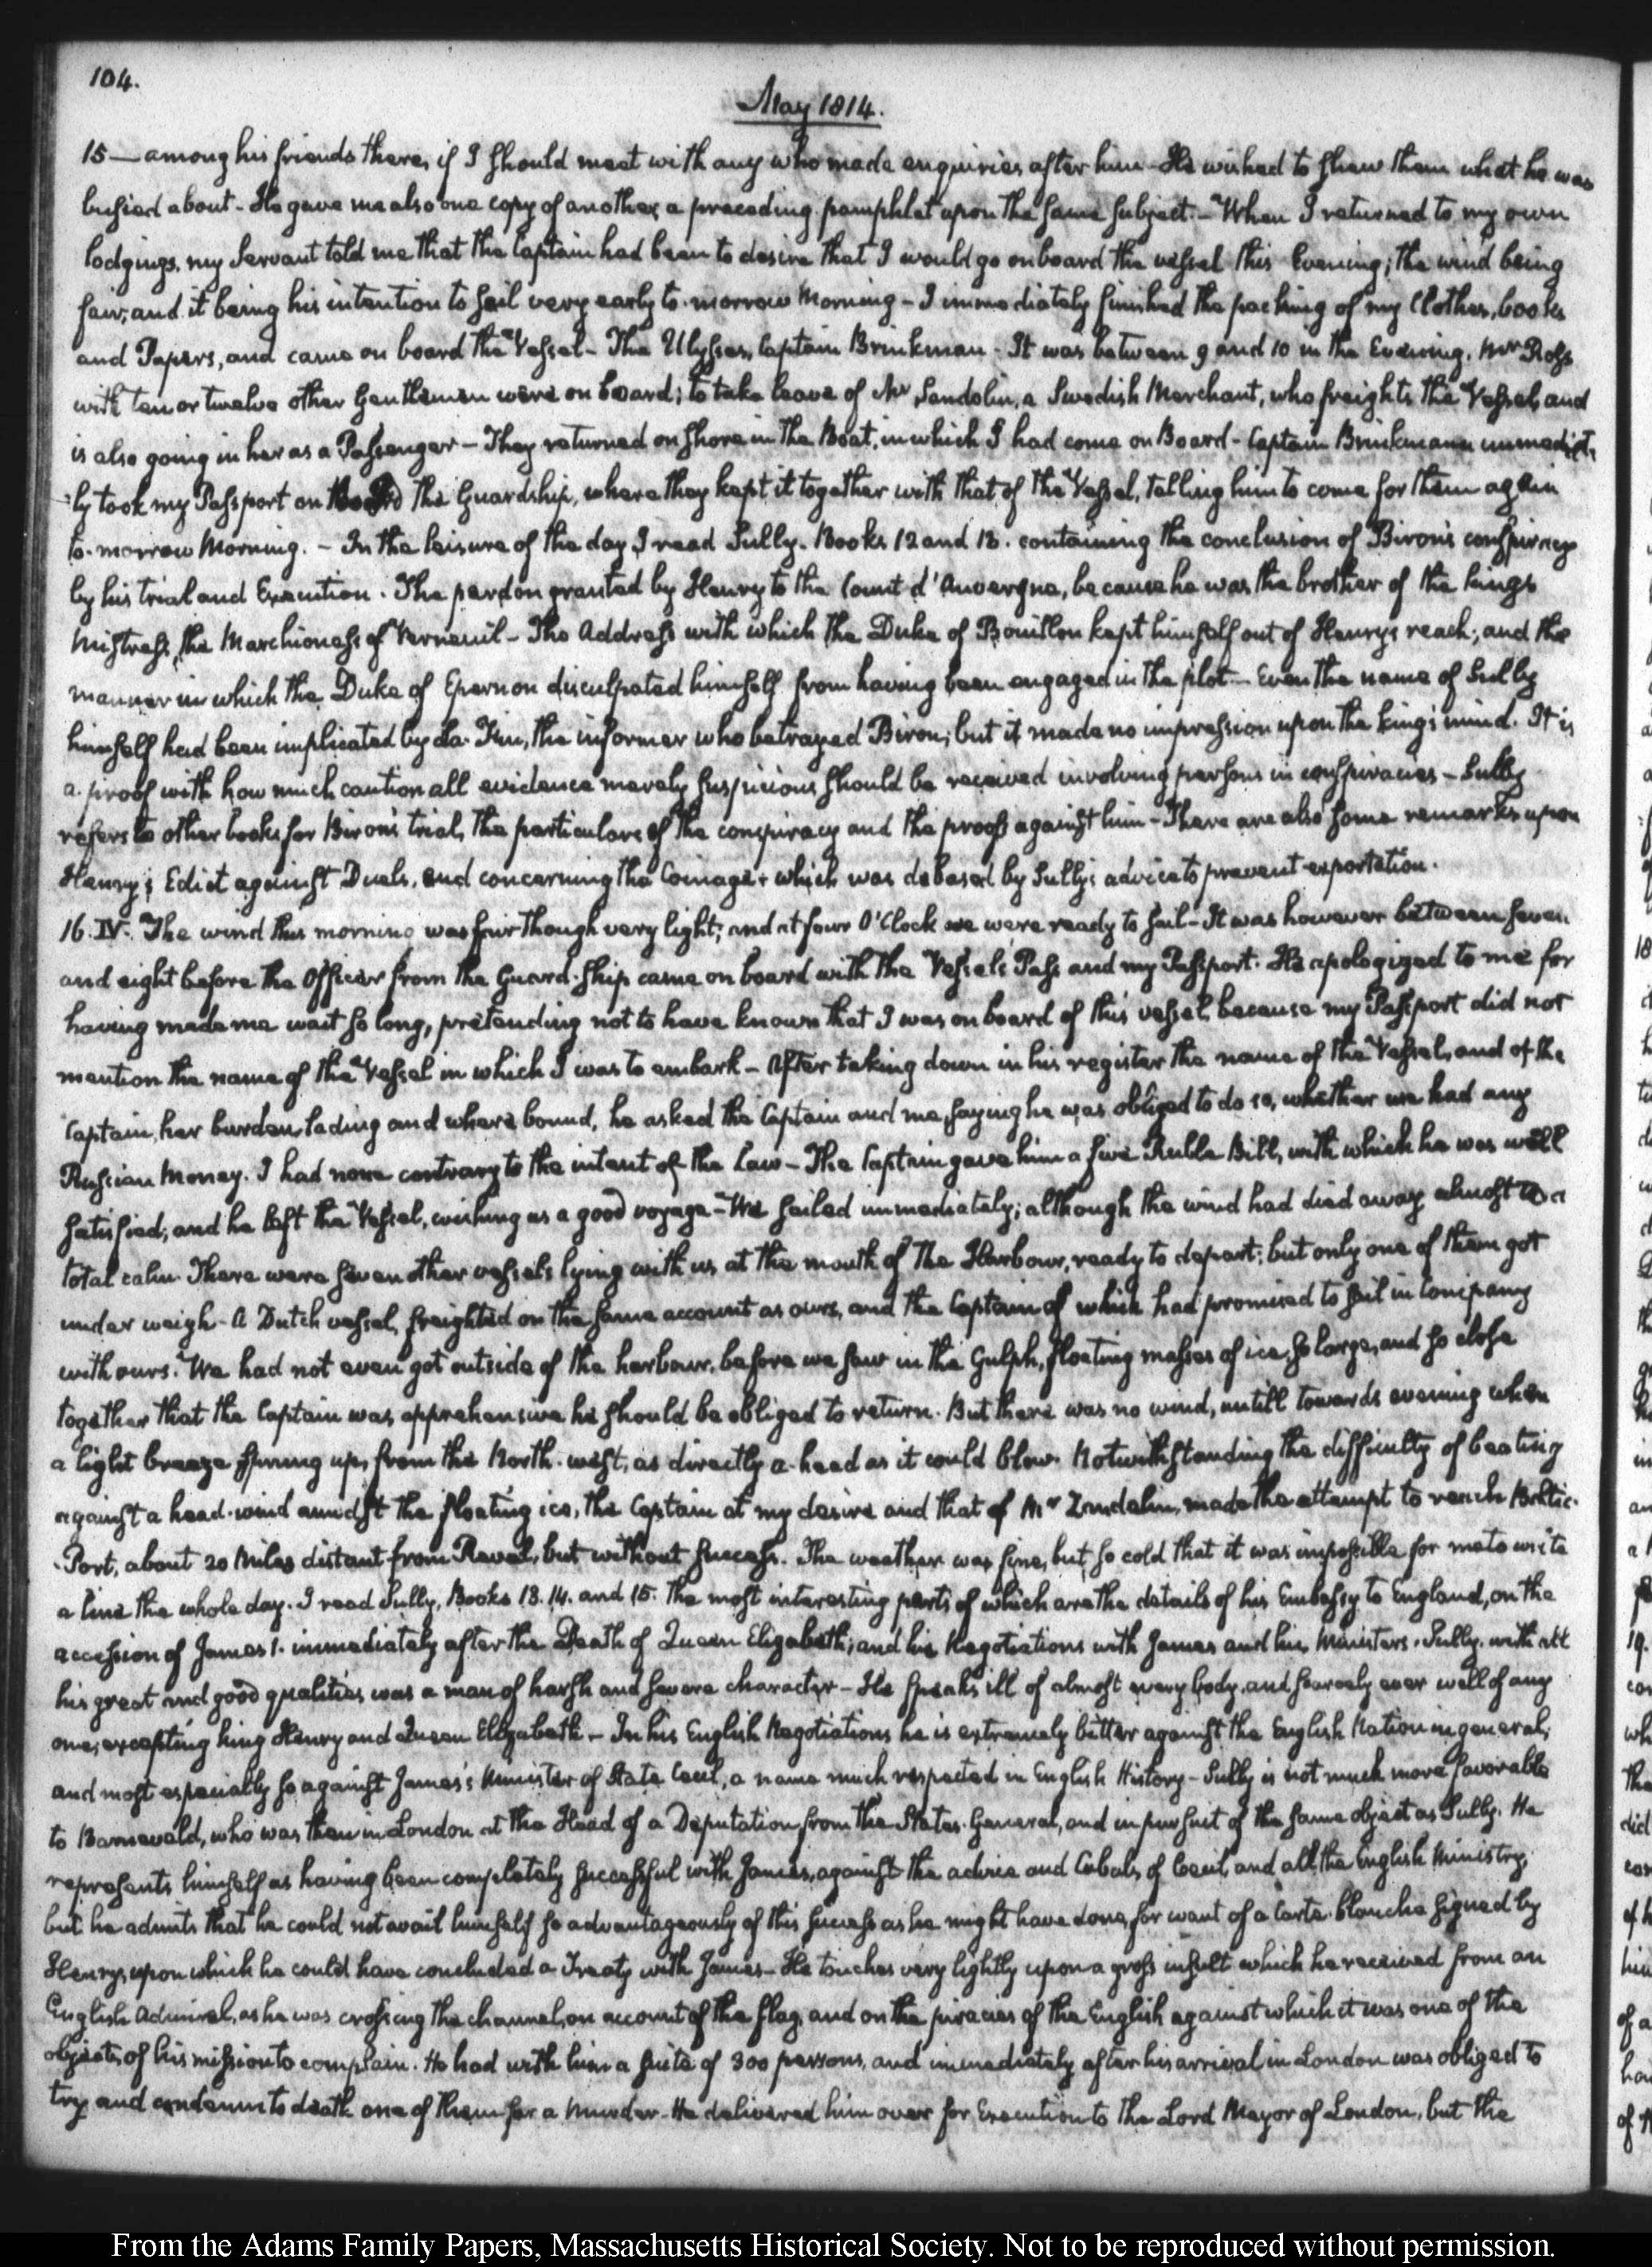 104.
May 1814.
15 — among his friends there, if I should meet with any who made enquiries after him — He wished to shew them what he was
busied about - He gave me also one copy of another, a preceding pamphlet upon the same subject. - When I returned to my own
lodgings, my Servant told me that the Captain had been to desire that I would go on board the vessel this Evening; the wind being
fair; and it being his intention to sail very early to-morrow Morning - I immediately finished the packing of my Clothes, books
and Papers, and came on board the Vessel - The Ulysses, Captain Brinkman - It was between 9 and 10 in the Evening. Mr Ross
with ten or twelve other Gentlemen were on board; to take leave of Mr Sandolin, a Swedish Merchant, who freights the Vessel, and
is also going in her as a Passenger - They returned on shore in the Boat, in which I had come on Board - Captain Brinkmann immediate-
-ly took my Passport on board the Guardship, where they kept it together with that of the Vessel, telling him to come for them again
to-morrow Morning. - In the leisure of the day I read Sully. Books 12 and 13. containing the conclusion of Biron's conspiracy
by his trial and Execution. The pardon granted by Henry to the Count d'Auvergne, because he was the brother of the king's
Mistress, the Marchioness of Verneuil - The Address with which the Duke of Bouillon kept himself out of Henry's reach; and the
manner in which the Duke of Epernon disculpated himself from having been engaged in the plot - Even the name of Sully
himself had been implicated by La-Fin, the informer who betrayed Biron; but it made no impression upon the king's mind. It is
a proof with how much caution all evidence merely suspicious should be received involving persons in conspiracies - Sully
refers to other books for Biron's trial, the particulars of the conspiracy and the proofs against him - There are also some remarks upon
Henry's Edict against Duels, and concerning the Coinage, which was debased by Sully's advice to prevent exportation.
16. IV. The wind this morning was fair though very light; and at four O'Clock we were ready to sail - It was however between seven
and eight before the Officer from the Guard-Ship came on board with the Vessel's Pass and my Passport. He apologized to me for
having made me wait so long, pretending not to have known that I was on board of this vessel, because my Passport did not
mention the name of the Vessel in which I was to embark - After taking down in his register the name of the Vessel, and of the
Captain, her burden, lading and where bound, he asked the Captain and me, saying he was obliged to do so, whether we had any
Russian Money. I had none contrary to the intent of the Law - The Captain gave him a five Ruble Bill, with which he was well
satisfied; and he left the Vessel, wishing us a good voyage - We sailed immediately; although the wind had died away almost to a
total calm. There were seven other vessels lying with us at the mouth of the Harbour, ready to depart; but only one of them got
under weigh - A Dutch vessel, freighted on the same account as ours, and the Captain of which had promised to sail in Company
with ours. We had not even got outside of the harbour, before we saw in the Gulph, floating masses of ice, so large, and so close
together that the Captain was apprehensive he should be obliged to return. But there was no wind, untill towards evening when
a light breeze sprung up, from the North-west, as directly a-head as it could blow. Notwithstanding the difficulty of beating
against a head-wind amidst the floating ice, the Captain at my desire and that of Mr made the attempt to reach Baltic-
-Port, about 20 Miles distant from Reval, but without success. The weather was fine, but so cold that it was impossible for me to write
a line the whole day. I read Sully, Books 13. 14. and 15. The most interesting parts of which are the details of his Embassy to England, on the
accession of James 1. immediately after the Death of Queen Elizabeth; and his Negotiations with James and his Ministers. Sully, with all
his great and good qualities was a man of harsh and severe character - He speaks ill of almost every body, and scarcely ever well of any
one, excepting king Henry and Queen Elizabeth - In his English Negotiations he is extremely bitter against the English Nation in general,
and most especially so against James's Minister of State Cecil, a name much respected in English History - Sully is not much more favorable
to Barneveld, who was then in London at the Head of a Deputation from the States-General, and in pursuit of the same object as Sully. He
represents himself as having been completely successful with James, against the advice and Cabals of Cecil, and all the English Ministry,
but he admits that he could not avail himself so advantageously of this success as he might have done, for want of a Carte-blanche signed by
Henry, upon which he could have concluded a Treaty with James - He touches very lightly upon a gross insult which he received from an
English Admiral, as he was crossing the channel, on account of the flag, and on the piracies of the English against which it was one of the
objects of his mission to complain. He had with him a suite of 300 persons, and immediately after his arrival in London was obliged to
try and condemn to death one of them for a Murder - He delivered him over for Execution to the Lord Mayor of London, but the
From the Adams Family Papers, Massachusetts Historical Society. Not to be reproduced without permission.